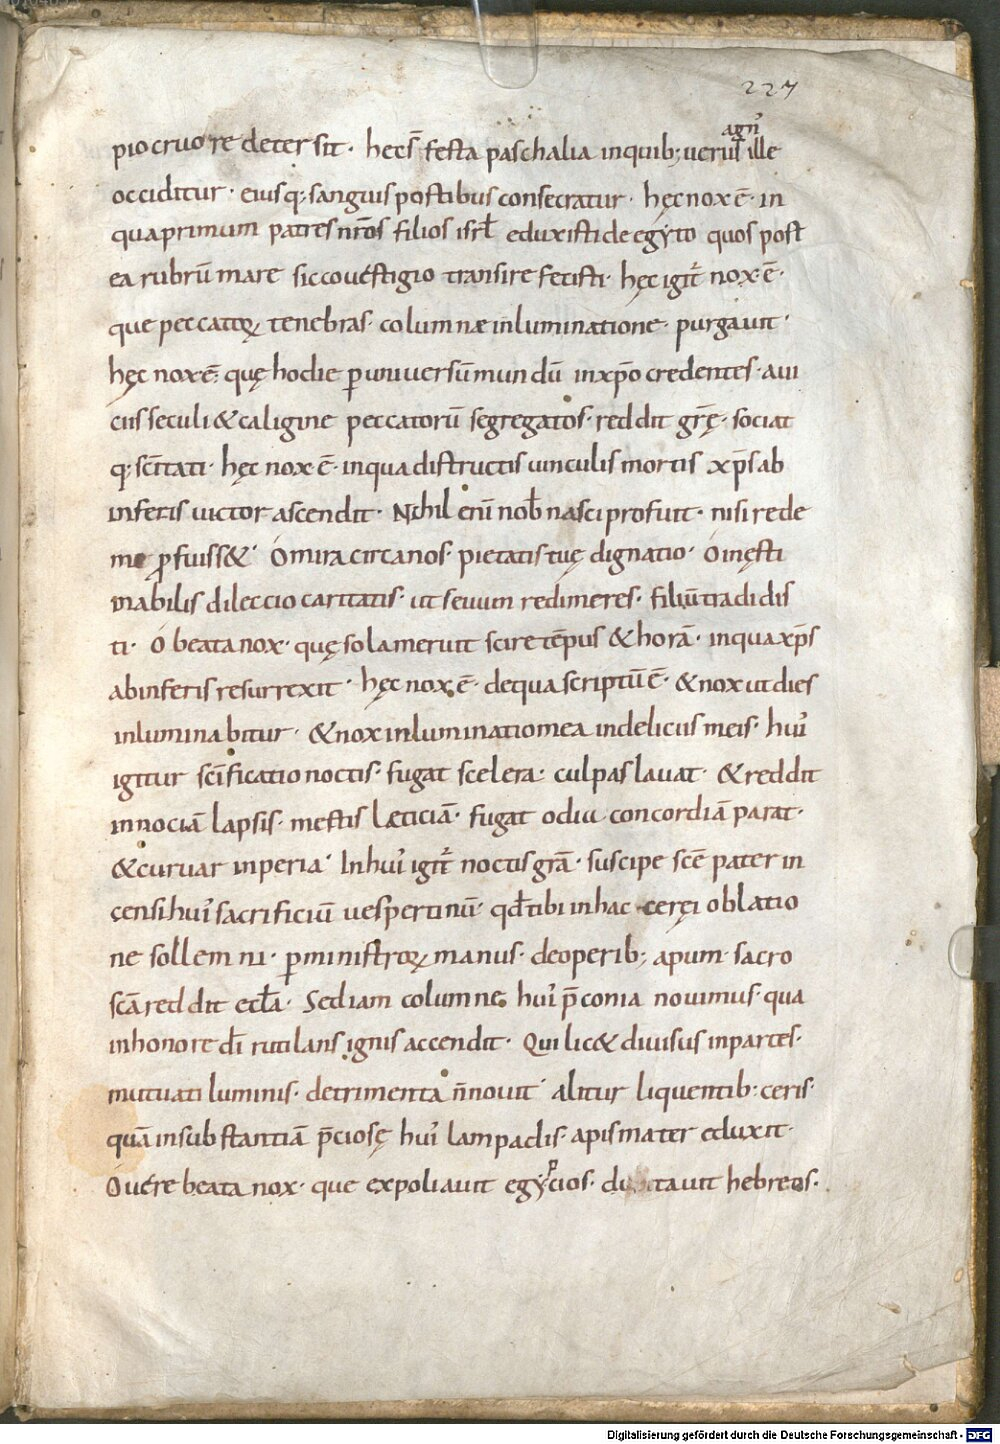 227
agñ
pio cruore deter sit · hec sͭ festa paschalia in quib; uerus ille
occiditur · eiusq; sanguis postibus consecratur · hęc nox ē · in
qua primum patres nr̄os filios isrł eduxisti de egypto quos post
ea rubrū mare sicco uestigio transire fecisti · hęc igit̄ nox ē ·
que peccatoꝝ tenebras · columnæ inluminatione · purgauit ·
hęc nox ē · quę hodie ꝑ uniuersū mundū in xp̄o credentes · a ui
ciis seculi & caligine peccatorū segregatos · reddit gr̄ę · sociat
q; sc̄itati · hęc nox ē · in qua distructis uinculis mortis xp̄s ab
inferis uictor ascendit · Nihil eni nob̄ nasci profuit · nisi rede
me ꝓfuiss& · O mira circa nos · pietatis tuę dignatio · O inęsti
mabilis dileccio caritatis · ut seuum redimeres · filiū tradidis
ti · O beata nox · quę sola meruit scire tēpus & horā · in qua xp̄s
ab inferis resurrexit · hęc nox ē · de qua scriptū ē · & nox ut dies
inluminabitur · & nox inluminatio mea in deliciis meis · hui᾽
igitur sc̄ificatio noctis · fugat scelera · culpas lauat · & reddit
innociā lapsis · mestis læticiā · fugat odia concordiā parat ·
& curuat inperia · In hui᾽ igit̄ noctis gr̄a · suscipe sc̄e pater in
censi hui᾽ sacrificiū uespertinū · qđ tibi in hac cerei oblatio
ne sollemni · ꝑ ministroꝝ manus · de operib; apum · sacro
sc̄a reddit eccła · Sed iam columne hui᾽ p̄conia nouimus · qua
in honore dī rutilans ignis accendit · Qui lic& diuisus in partes ·
mutuati luminis · detrimenta n̄ nouit · alitur liquentib: ceris ·
quā in substantiā p̄ciosę hui᾽ lampadis · apis mater eduxit ·
O uere beata nox · que expoliauit egypcios · ditauit hebreos ·
Digitalisierung gefördert durch die Deutsche Forschungsgemeinschaft - DFG